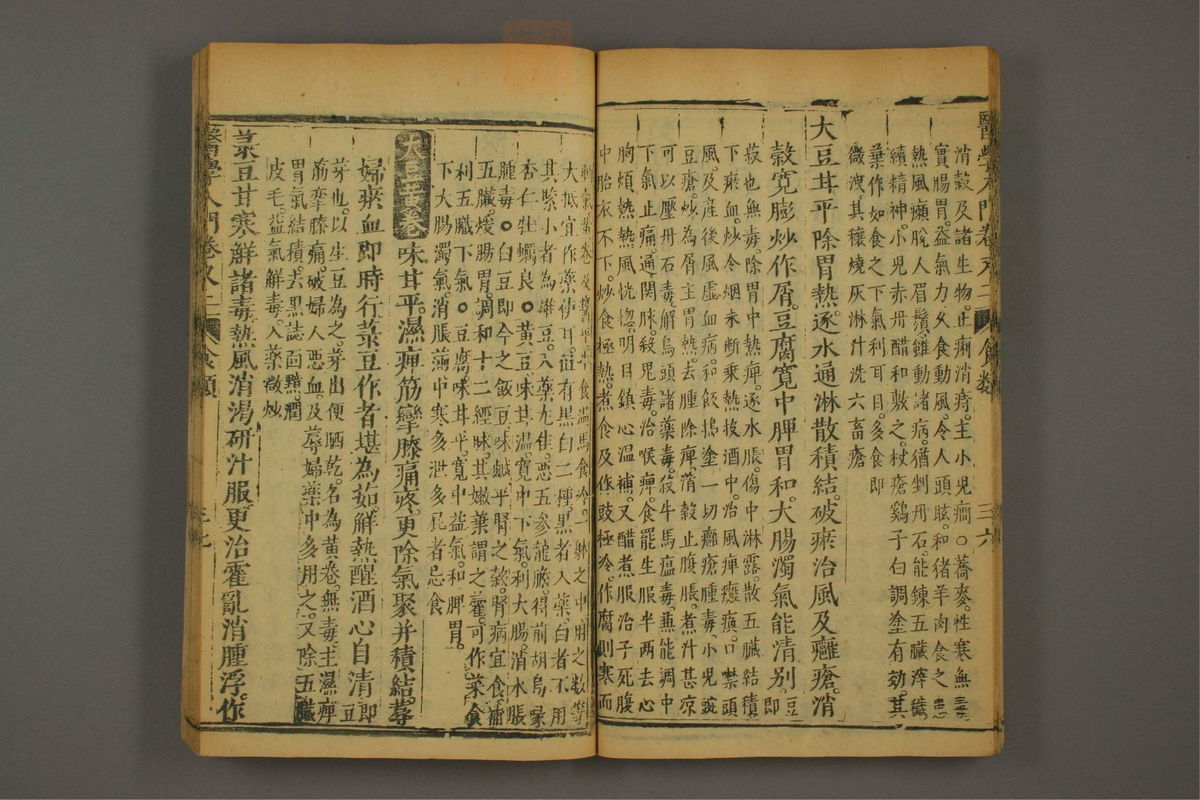 醫學入門卷之二 食類 三六
消穀及諸生物止痢消痔主小兒癇○蕎麥性寒無毒
實腸胃益氣力久食動風令人頭眩和猪羊肉食之患
熱風癩脫人眉鬚雖動諸病猶剉丹石能鍊五臟滓穢
續精神小兒赤丹醋和敷之杖瘡雞子白調塗有効其
葉作如食之下氣利耳目多食即
微洩其穰燒灰淋汁洗六畜瘡
大豆甘平除胃熱逐水通淋散積結破瘀治風及癰瘡消
穀寬膨炒作屑豆腐寬中脾胃和大腸濁氣能清別豆即
菽也無毒除胃中熱痺逐水脹傷中淋露散五臟結積
下瘀血炒令烟未斷乘熱投酒中治風痺癱瘓口禁頭
風及産後風虛血病和飯搗塗一切癰瘡腫毒小兒豌
豆瘡炒為屑主胃熱去腫除痺消穀止腹脹煮汁甚凉
可以壓丹石毒解烏頭諸藥毒殺牛馬瘟毒兼能調中
下氣止痛通關脉殺鬼毒治喉痺食罷生服半兩去心
胸煩熱熱風恍惚明目鎮心温補又醋煮服治子死腹
中胎衣不下炒食極熱煮食及作豉極冷作腐則寒而
動氣黃卷及醬平牛食温馬食冷一躰之中用之數等
大抵宜作藥使耳但有黑白二種黑者入藥白者不用
其緊小者為雄豆入藥尤佳惡五參龍膽得前胡烏喙
杏仁牡蠣良○黃豆味甘温寬中下氣利大腸消水脹
腫毒○白豆即今之飯豆味鹹平腎之穀腎病宜食補
五臟煖腸胃調和十二經脉其嫩葉謂之藿可作菜食
利五臟下氣○豆腐味甘平寬中益氣和脾胃
下大腸濁氣消脹滿中寒多泄多屁者忌食
大豆黃卷味甘平濕痺筋攣膝痛疼更除氣聚并積結蓐
婦瘀血即時行菉豆作者堪為茹解熱醒酒心自清即豆
芽也以生豆為之芽出便晒乾名為黃卷無毒主濕痺
筋攣膝痛破婦人惡血及蓐婦藥中多用之又除五臟
胃氣結積去黑誌面䵟潤
皮毛益氣解毒入藥微炒
菉豆甘寒解諸毒熱風消渴研汁服更治霍亂消腫浮作
醫學入門卷之二 食類 三七